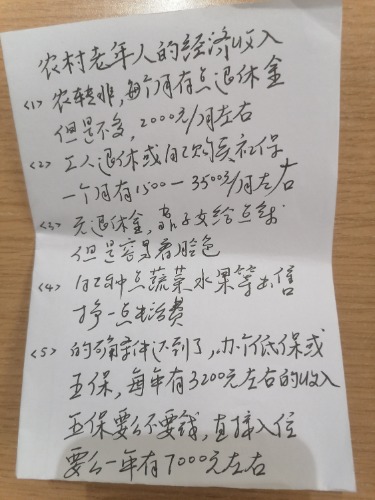 农村老年人的经济收入
<1>农转非，每个月有点退休金
但是不多，2000元/月左右
<2>工人退休或自己购买社保
一个月有1500-3500元/月左右
<3>无退休金，靠子女给点钱
但是容易看脸色
<4>自己种点蔬菜水果等出售
挣一点生活费
<5>的确条件达到了，办个低保或
五保，每年有3200元左右的收入
五保要么不要钱，直接入住
要么一年有7000元左右